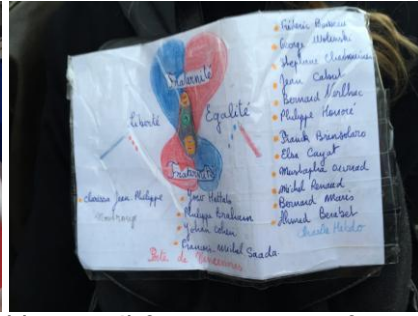 Fraternité
Liberté
Egalité
Fraternité
Clarissa Jean Philippe
Montrouge
Yoav Hattab
Philippe Braham
Yohan Cohen
François-Michel Saada
Porte de Vincennes
Frédéric Boisseau
George Wolinski
Stéphane Charbonnier
Jean Cabut
Bernard Verlhac
Philippe Honoré
Franck Brinsolaro
Elsa Cayat
Mustapha Ourrad
Michel Renaud
Bernard Maris
Ahmed
Charlie Hebdo